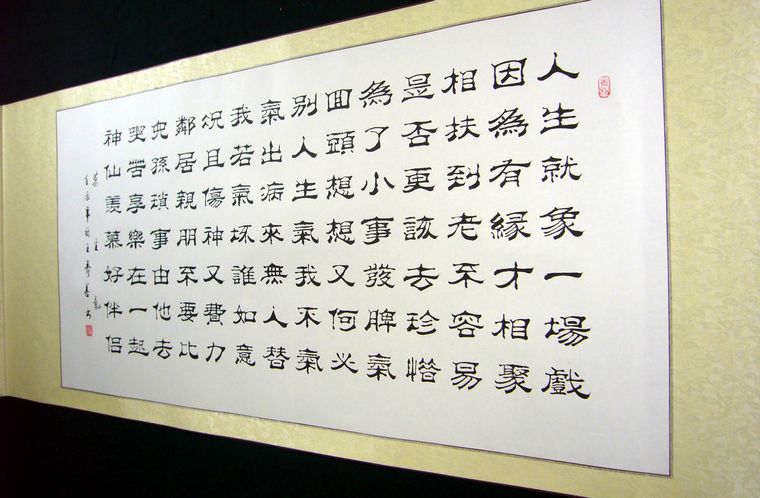 人生就象一場戲
因為有緣才相聚
相扶到老不容易
昰否更該去珍惜
為了小事發脾氣
回頭想想又何必
別人生氣我不氣
氣出病來無人替
我若氣坏誰如意
況且傷神又費力
鄰居親朋不要比
兒孫瑣事由他去
苦享樂在一起
神仙羨慕好伴侶
莫生氣
壬辰年秋王秀书